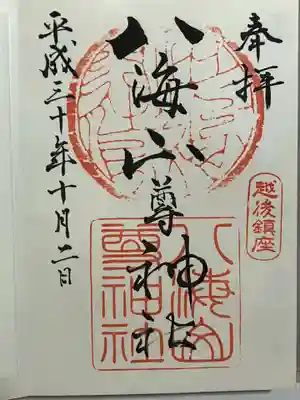 奉拝
越後鎮座
八海山尊神社
八海山尊神社
平成三十年十月二日